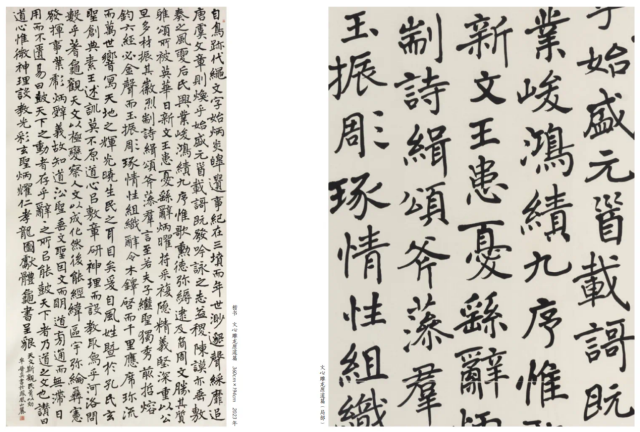 自鳥跡代繩文字始炳炎皞遺事紀在三墳而年世渺邈聲靡追
唐虞文章則煥乎始盛元首載謌既發吟詠之志益稷陳謨亦垂敷
奏之風夏后氏興業峻鴻績九序惟歌勳德彌縟逮及商周文勝其質
雅頌所被英華日新文王患憂繇辭炳曜符采複隱精義堅深重以公
旦多材振其徽烈剬詩緝頌斧藻羣言至若夫子繼聖獨秀前哲熔
鈞六經必金聲而玉振彫琢情性組織辭令木鐸啓而千里應席珍流
而萬世響寫天地之輝光曉生民之耳目矣爰自風姓暨於孔氏玄
聖創典素王述訓莫不原道心㠯敷章研神理而設教取象乎河洛問
數乎蓍龜觀天文以極變察人文以成化然後能經緯區宇彌綸彝憲
發揮事業彪炳辭義故知道沿聖垂文聖因文而明道旁通而無滯日
用而不匱易曰鼓天下之動者存乎辭辭之所㠯能鼓天下者乃道之文也讚曰
道心惟微神理設教光彩玄聖炳耀仁孝龍圖獻體龜書呈貌天文斯觀民胥以効
楷书 文心雕龙原道篇 360cm×194cm 2023年
乎始盛元首載謌既
業峻鴻績九序惟
新文王患憂繇辭炳
剬詩緝頌斧藻羣
玉振彫琢情性組織
文心雕龙原道篇（局部）